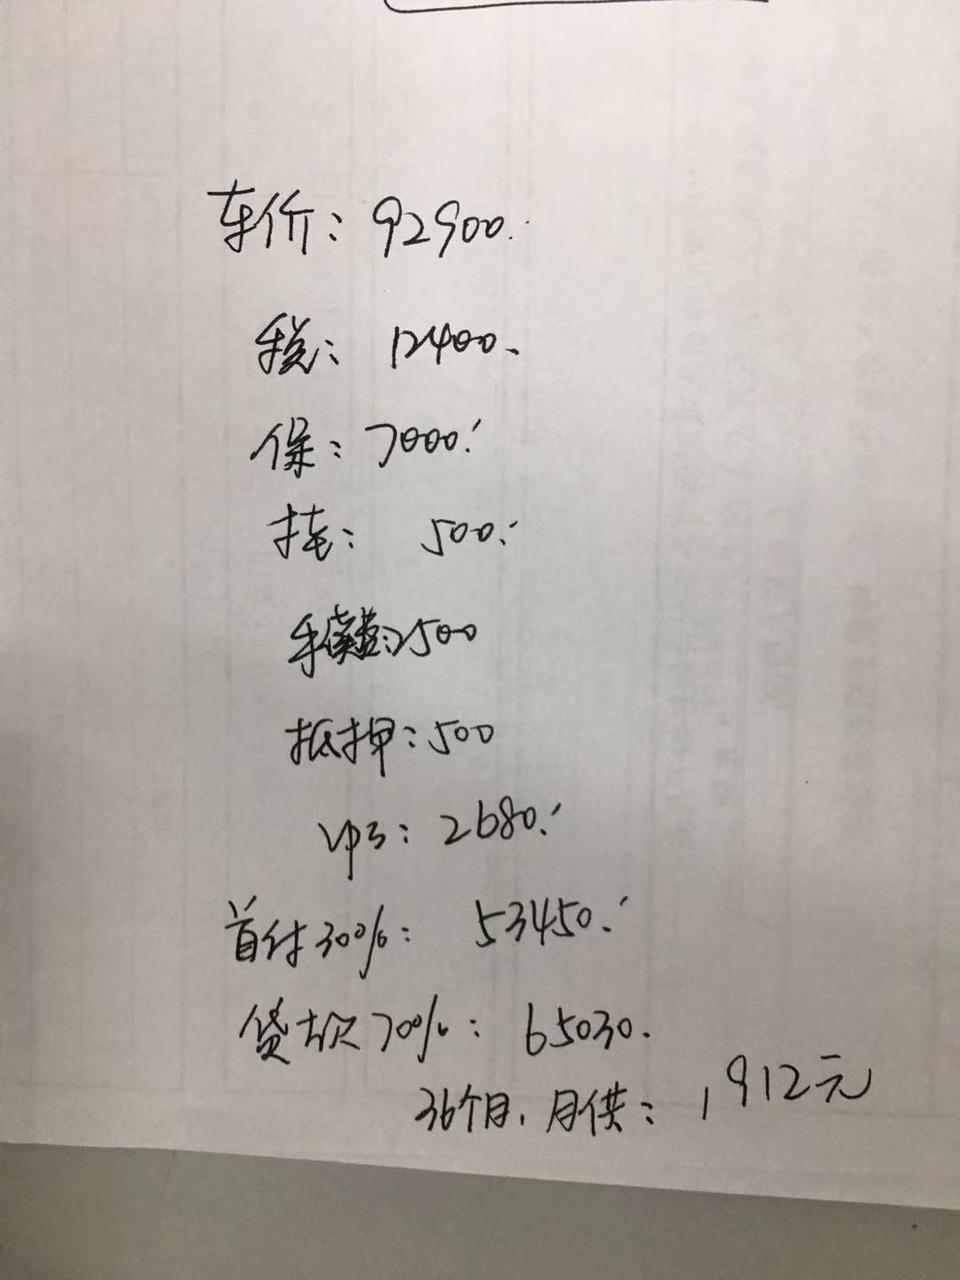 车价：92900.
税：12400.
保：7000.
挂：500.
手续费：2500
抵押：500
GPS：2680.
首付30%：53450.
贷款70%：65030.
36个月，月供：1912元